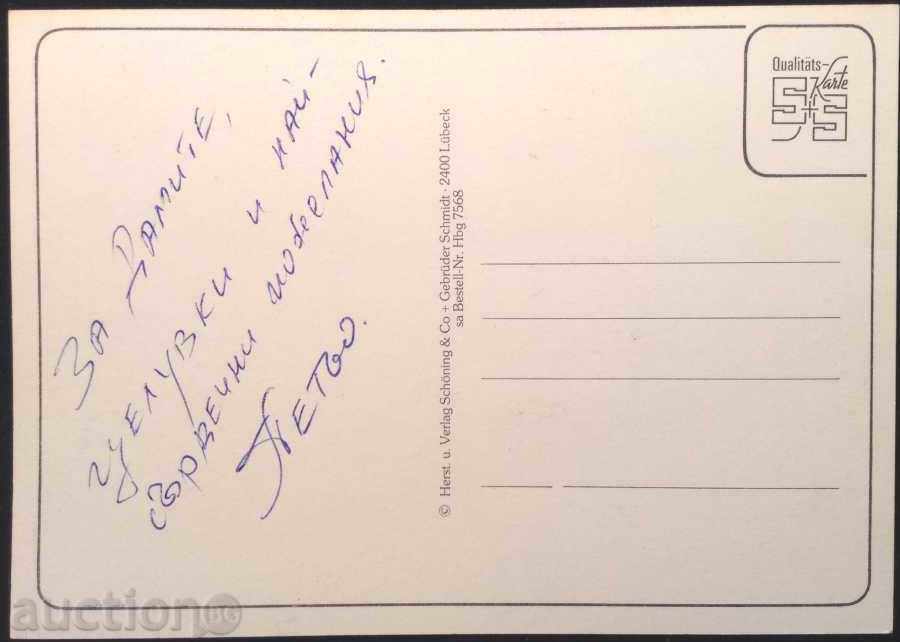 За дамите,
целувки и най-
сърдечни пожелания.
Петьо.
© Herst. u. Verlag Schöning & Co + Gebrüder Schmidt · 2400 Lübeck
sa Bestell-Nr. Hbg 7568
Qualitäts-
Karte
S+S
auction BG